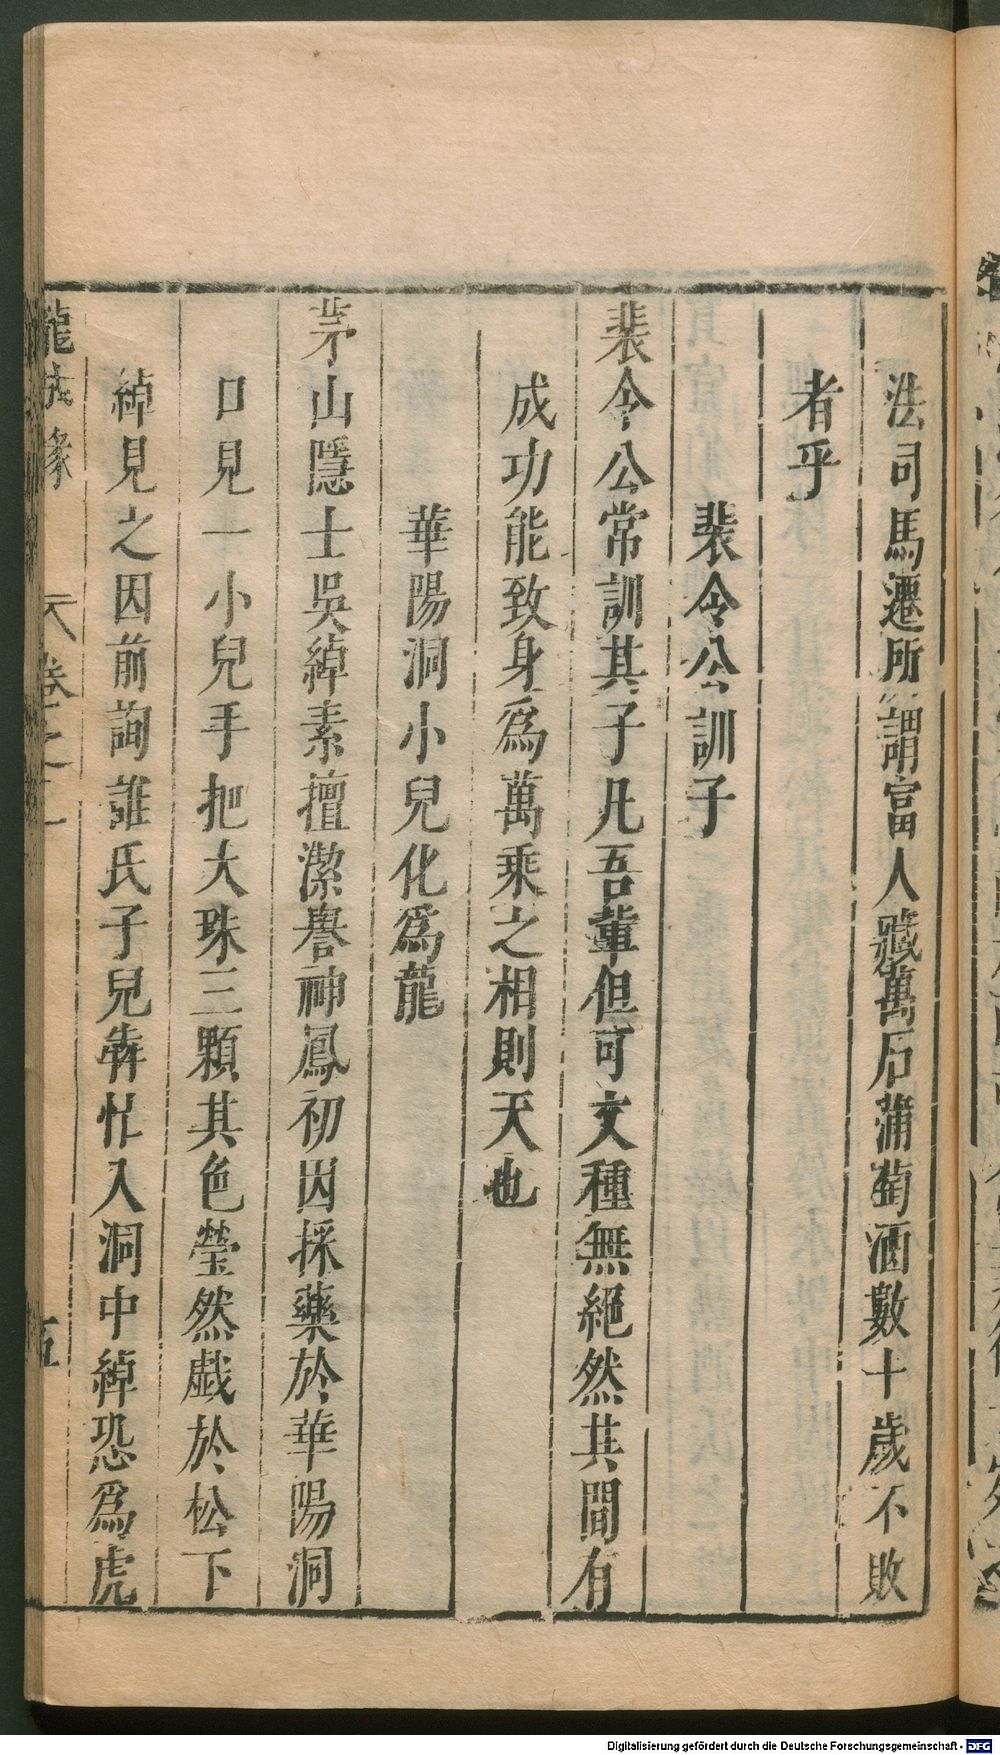 法司馬遷所謂富人藏萬石蒲萄酒數十歲不敗
者乎
裴令公訓子
裴令公常訓其子凡吾輩但可文種無絕然其間有
成功能致身爲萬乘之相則天也
華陽洞小兒化爲龍
茅山隱士吳綽素擅潔譽神鳳初因採藥於華陽洞
口見一小兒手把大珠三顆其色瑩然戲於松下
綽見之因前詢誰氏子兒犇忙入洞中綽恐爲虎
卷之一
五
Digitalisierung gefördert durch die Deutsche Forschungsgemeinschaft - DFG